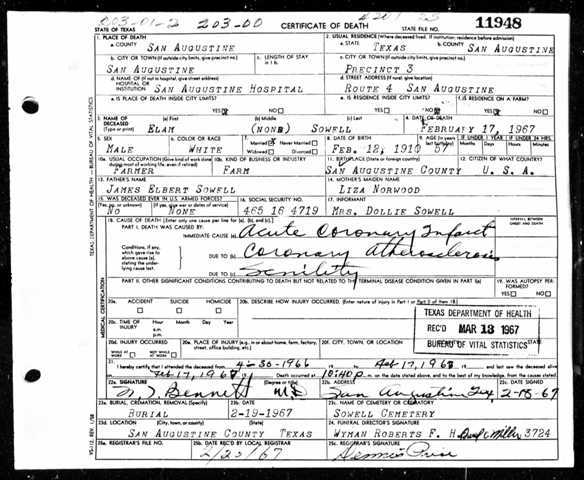 203-01-2 203-00
STATE OF TEXAS CERTIFICATE OF DEATH STATE FILE NO. 11948
1. PLACE OF DEATH 2. USUAL RESIDENCE (Where deceased lived. If institution: residence before admission)
a. COUNTY SAN AUGUSTINE a. STATE TEXAS b. COUNTY SAN AUGUSTINE
b. CITY OR TOWN (If outside city limits, give precinct no.) c. LENGTH OF STAY in 1 b. c. CITY OR TOWN (If outside city limits, give precinct no.)
SAN AUGUSTINE PRECINCT 3
d. NAME OF (If not in hospital, give street address) HOSPITAL OR INSTITUTION SAN AUGUSTINE HOSPITAL d. STREET ADDRESS (If rural, give location) ROUTE 4 SAN AUGUSTINE
e. IS PLACE OF DEATH INSIDE CITY LIMITS? YES NO e. IS RESIDENCE INSIDE CITY LIMITS? YES NO f. IS RESIDENCE ON A FARM? YES NO
3. NAME OF DECEASED (Type or print) (a) First (b) Middle (c) Last 4. DATE OF DEATH
ELAM (NONE) SOWELL FEBRUARY 17, 1967
5. SEX 6. COLOR OR RACE 7. Married Never Married Widowed Divorced 8. DATE OF BIRTH 9. AGE (In years last birthday) IF UNDER 1 YEAR IF UNDER 24 HRS. Months Days Hours Min.
MALE WHITE FEB. 12, 1910 57
10a. USUAL OCCUPATION (Give kind of work done during most of working life, even if retired) 10b. KIND OF BUSINESS OR INDUSTRY 11. BIRTHPLACE (State or foreign country) 12. CITIZEN OF WHAT COUNTRY?
FARMER FARM SAN AUGUSTINE COUNTY U. S. A.
13. FATHER'S NAME 14. MOTHER'S MAIDEN NAME
JAMES ELBERT SOWELL LIZA NORWOOD
15. WAS DECEASED EVER IN U.S. ARMED FORCES? (Yes, no, or unknown) (If yes, give war or dates of service) 16. SOCIAL SECURITY NO. 17. INFORMANT
NO NONE 465 16 4719 MRS. DOLLIE SOWELL
18. CAUSE OF DEATH (Enter only one cause per line for (a), (b), and (c).) INTERVAL BETWEEN ONSET AND DEATH
PART I. DEATH WAS CAUSED BY:
IMMEDIATE CAUSE (a) Acute Coronary Infarct
Conditions, if any, which gave rise to above cause (a), stating the underlying cause last.
DUE TO (b) Coronary Atherosclerosis
DUE TO (c) Senility
PART II. OTHER SIGNIFICANT CONDITIONS CONTRIBUTING TO DEATH BUT NOT RELATED TO THE TERMINAL DISEASE CONDITION GIVEN IN PART I(a) 19. WAS AUTOPSY PERFORMED? YES NO
20a. ACCIDENT SUICIDE HOMICIDE 20b. DESCRIBE HOW INJURY OCCURRED. (Enter nature of injury in Part I or Part II of item 18.)
20c. TIME OF INJURY Hour Month Day Year a.m. p.m.
TEXAS DEPARTMENT OF HEALTH
REC'D MAR 13 1967
BUREAU OF VITAL STATISTICS
20d. INJURY OCCURRED WHILE AT WORK NOT WHILE AT WORK 20e. PLACE OF INJURY (e.g., in or about home, farm, factory, street, office building, etc.) 20f. CITY, TOWN, OR LOCATION COUNTY STATE
21. I hereby certify that I attended the deceased from 4-30-1966 to Feb 17, 1967 and last saw the deceased alive
on Feb 17, 1967 Death occurred at 10:40 p. m. on the date stated above, and to the best of my knowledge, from the causes stated.
22a. SIGNATURE (Degree or title) 22b. ADDRESS 22c. DATE SIGNED
Bennett MD San Augustine Tex 2-18-67
23a. BURIAL, CREMATION, REMOVAL (Specify) 23b. DATE 23c. NAME OF CEMETERY OR CREMATORY
BURIAL 2-19-1967 SOWELL CEMETERY
23d. LOCATION (City, town, or county) (State) 24. FUNERAL DIRECTOR'S SIGNATURE
SAN AUGUSTINE COUNTY TEXAS WYMAN ROBERTS F. H. Miller 3724
25a. REGISTRAR'S FILE NO. 25b. DATE REC'D BY LOCAL REGISTRAR 25c. REGISTRAR'S SIGNATURE
2/20/67
TEXAS DEPARTMENT OF HEALTH — BUREAU OF VITAL STATISTICS
MEDICAL CERTIFICATION
VS-112, REV. 1/58